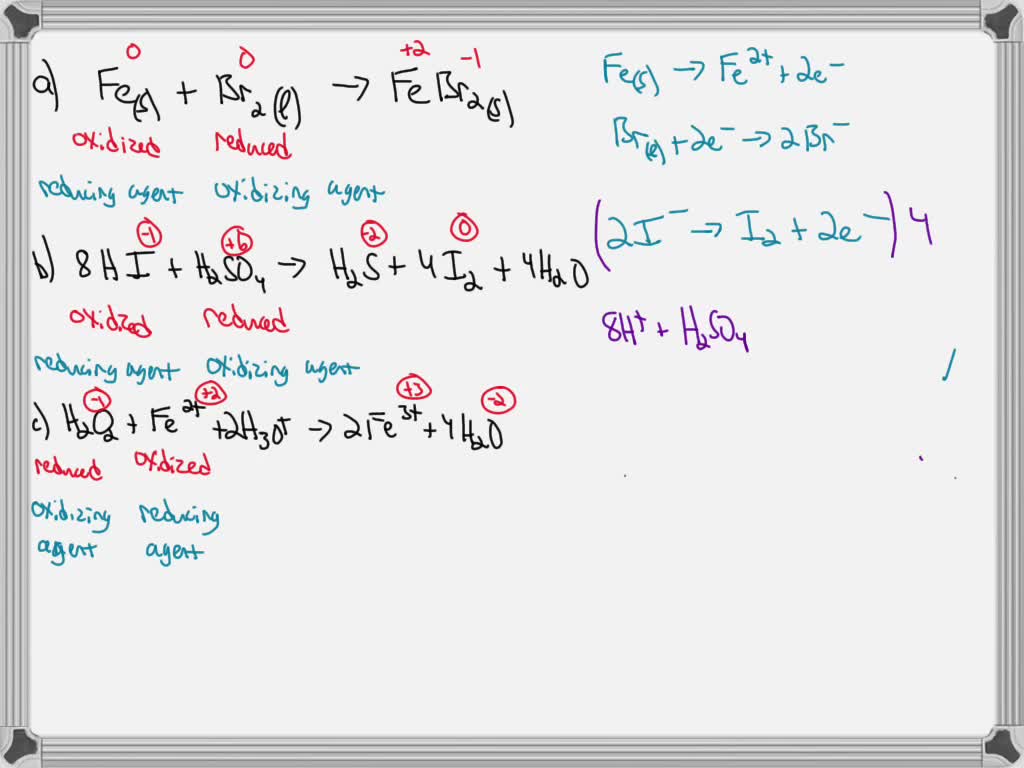 0 0 +2 -1
a) Fe(s) + Br2(l) → FeBr2(s)
oxidized reduced
reducing agent oxidizing agent
-1 +6 -2 0
b) 8HI + H2SO4 → H2S + 4I2 + 4H2O
oxidized reduced
reducing agent oxidizing agent
-1 +2 +3 -2
c) H2O2 + Fe2+ + 2H3O+ → 2Fe3+ + 4H2O
reduced oxidized
oxidizing reducing
agent agent
Fe(s) → Fe2+ + 2e−
Br(l) + 2e− → 2Br−
(2I− → I2 + 2e−)4
8H+ + H2SO4